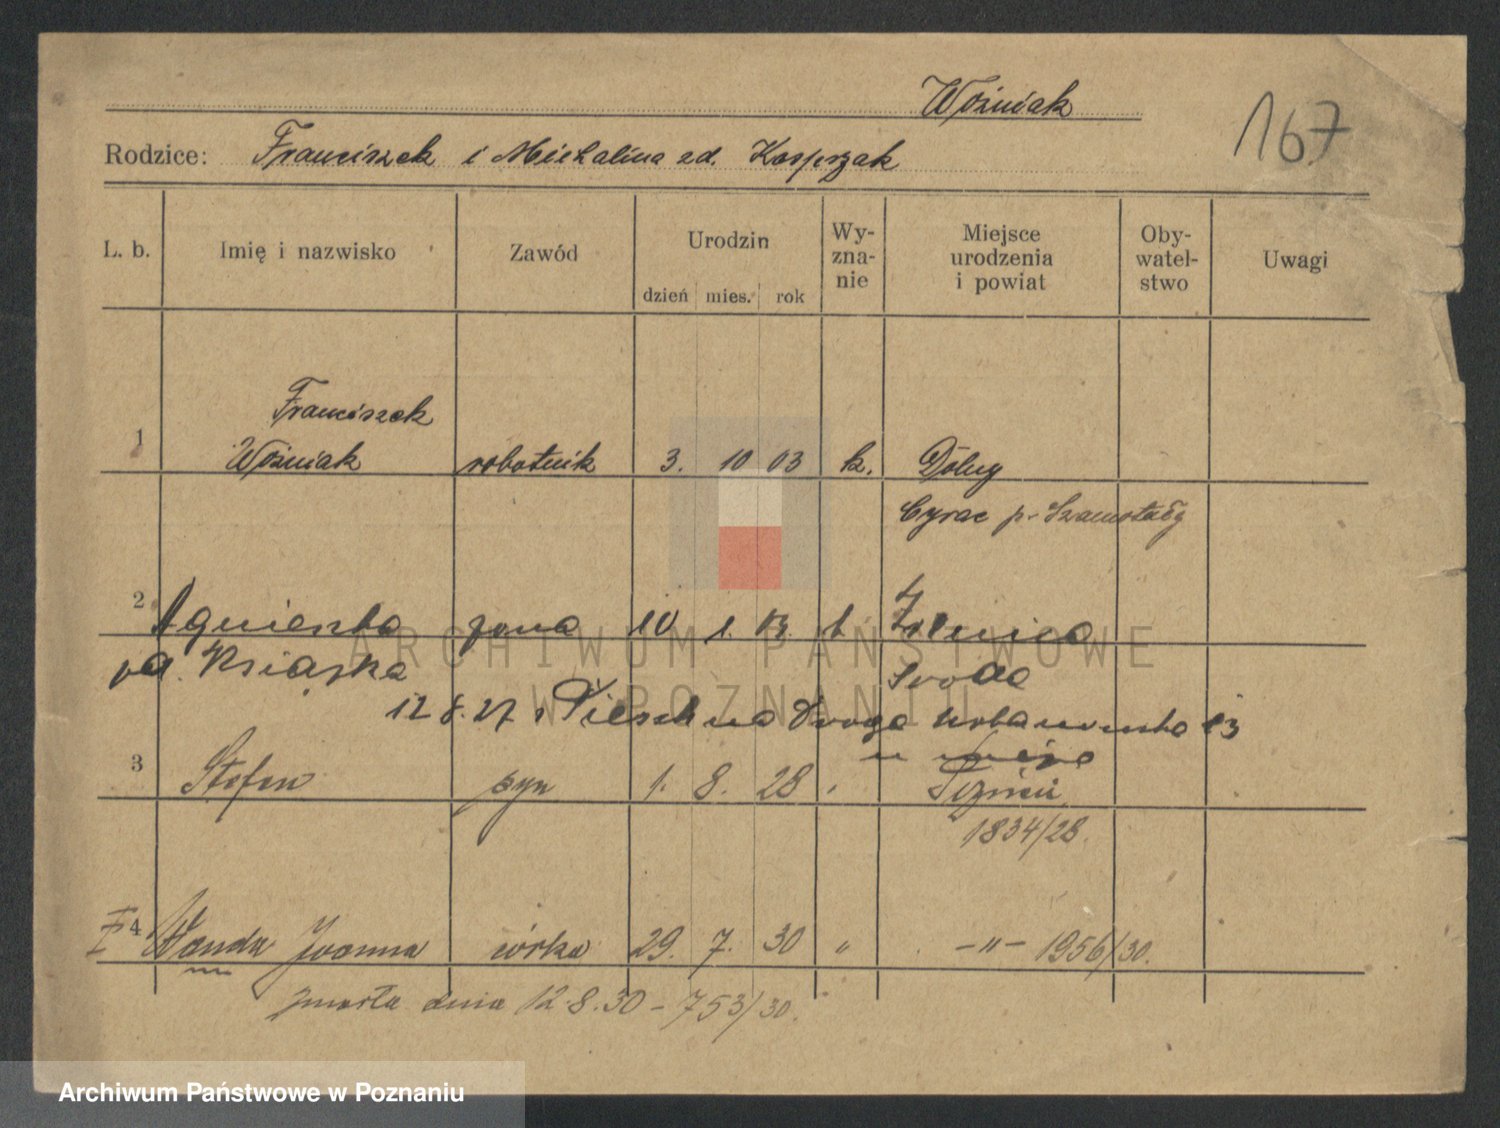 Woźniak
167
Rodzice: Franciszek i Michalina zd. Kasprzak
L. b. Imię i nazwisko Zawód Urodzin dzień mies. rok Wy-zna-nie Miejsce urodzenia i powiat Oby-watel-stwo Uwagi
Franciszek
1 Woźniak robotnik 3. 10 03 k. Długy
p. Szamotuły
2 Agnieszka żona 10 1. k.
zd. Książka Środa
ARCHIWUM PAŃSTWOWE
W POZNANIU
12 8. 27. Droga Urbanowska
3 Stefan syn 1. 8. 28
1834/28.
4 Wanda Joanna córka 29. 7. 30 " -"- 1956/30.
zmarła dnia 12.8.30 - 753/30.
Archiwum Państwowe w Poznaniu